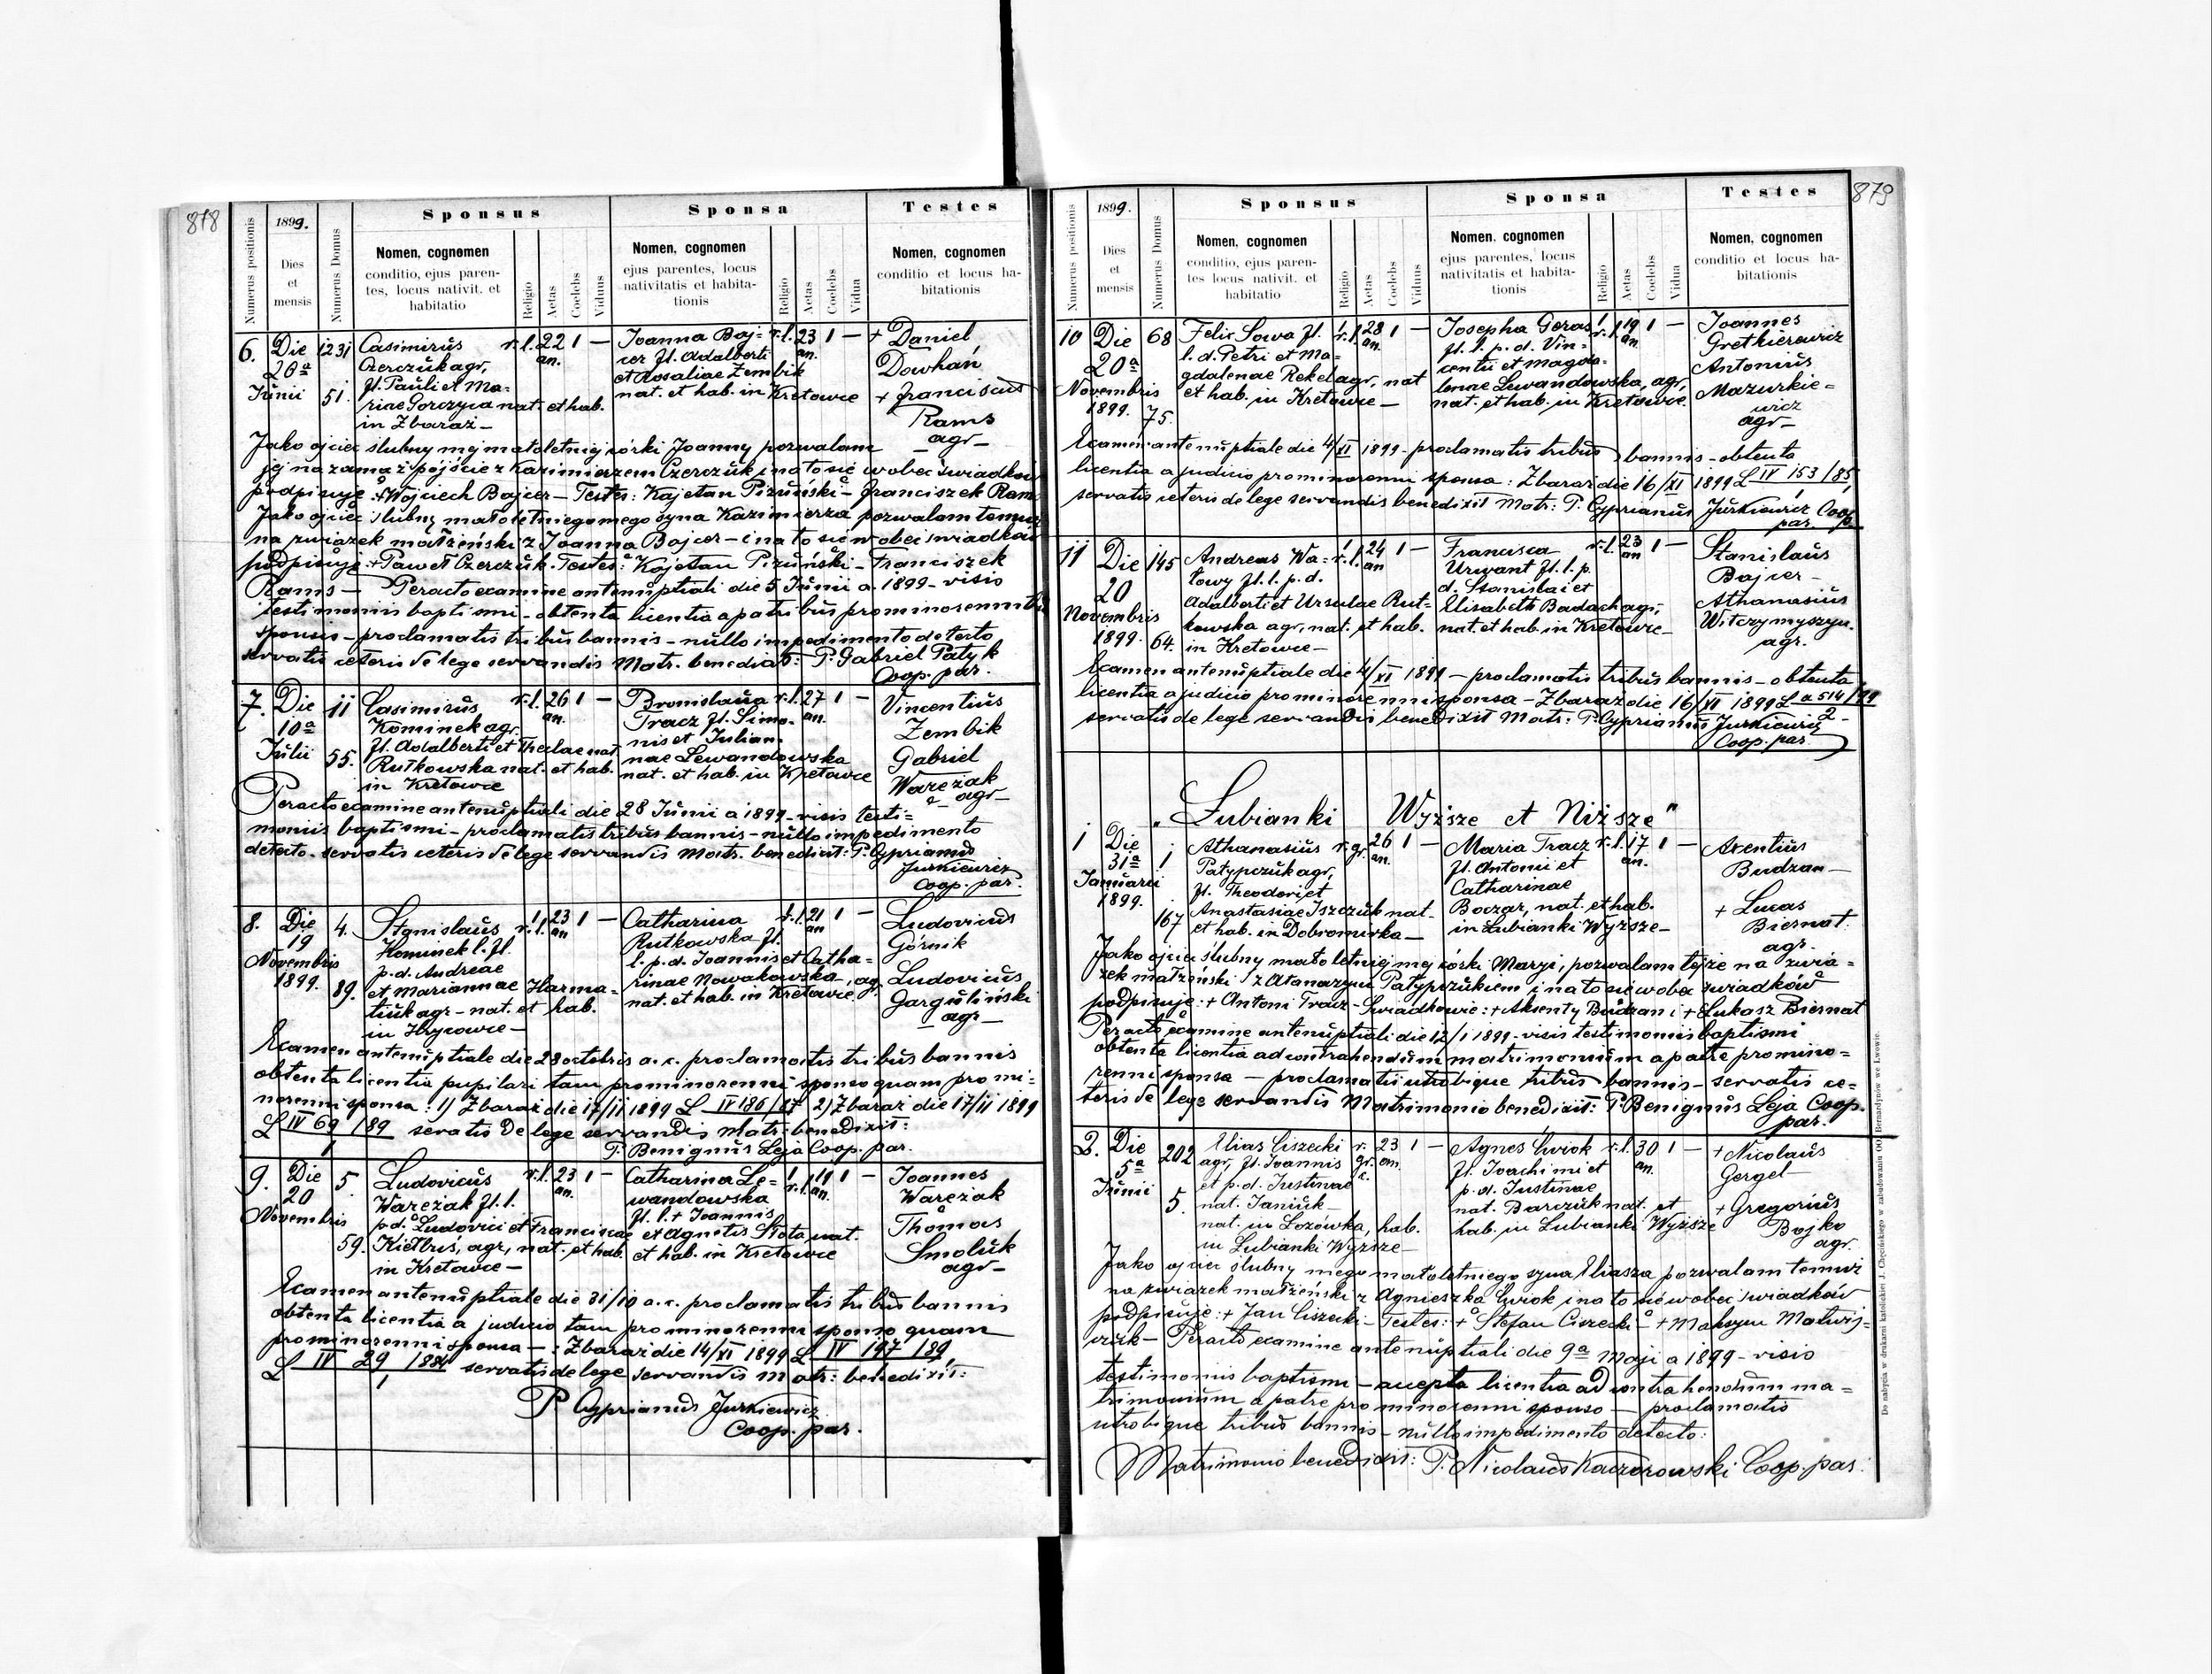 878
1899.
Sponsus
Sponsa
Testes
Numerus positionis
Dies
et
mensis
Numerus Domus
Nomen, cognomen
conditio, ejus paren-
tes, locus nativit. et
habitatio
Religio
Aetas
Coelebs
Viduus
Nomen, cognomen
ejus parentes, locus
nativitatis et habita-
tionis
Religio
Aetas
Coelebs
Vidua
Nomen, cognomen
conditio et locus ha-
bitationis
6. Die 1231 Casimirus r.l. 22 1 — Joanna Baj- r.l. 23 1 — + Daniel
20a Czerczuk agr, an. cer fl. Adalberti an. Dowhań
Junii 51. fl. Pauli et Ma- et Rosaliae Zembik + Franciscus
riae Gorczyca nat. et hab. nat. et hab. in Kretowce Rams
in Zbaraż — agr —
Jako ojciec ślubny mej małoletniej córki Joanny pozwalam
jej na zamążpójście z Kazimierzem Czerczuk i na to się wobec świadków
podpisuję + Wojciech Bajcer — Testes: Kajetan Piruński — Franciszek Rams
Jako ojciec ślubny małoletniego mego syna Kazimierza pozwalam temuż
na związek małżeński z Joanną Bajcer — i na to się wobec świadków
podpisuję + Paweł Czerczuk. Testes: Kajetan Piruński — Franciszek
Rams — Peracto examine antenuptiali die 5 Junii a. 1899 — visis
testimoniis baptismi — obtenta licentia a patribus pro minorennibus
sponsis — proclamatis tribus bannis — nullo impedimento detecto
servatis ceteris de lege servandis Matr. benedixit: P. Gabriel Patyk
Coop. par.
7. Die 11 Casimirus r.l. 26 1 — Bronislava r.l. 27 1 — Vincentius
10a Kominek agr. an. Tracz fl. Simo- an. Zembik
Julii 55. fl. Adalberti et Theclae nat. nis et Julian- Gabriel
Rutkowska nat. et hab. nae Lewandowska Wareżak
in Kretowce nat. et hab. in Kretowce agr —
Peracto examine antenuptiali die 28 Junii a 1899 — visis testi-
moniis baptismi — proclamatis tribus bannis — nullo impedimento
detecto — servatis ceteris de lege servandis Matr. benedixit: P. Cyprianus
Jurkiewicz
Coop. par.
8. Die 4. Stanislaus r.l. 23 1 — Catharina r.l. 21 1 — Ludovicus
19 Kominek l. fl. an Rutkowska fl. an Górnik
Novembris p.d. Andreae l. p.d. Joannis et Catha- Ludovicus
1899. 89. et Mariannae Harma- rinae Nowakowska, agr. Garguliński
tiuk agr — nat. et hab. nat. et hab. in Kretowce agr —
in Hrycowce —
Examen antenuptiale die 28 octobris a. c. proclamatis tribus bannis
obtenta licentia pupilari tam pro minorenni sponso quam pro mi-
norenni sponsa: 1) Zbaraż die 17/11 1899 L IV 186/87 2) Zbaraż die 17/11 1899
L IV 69/89 servatis de lege servandis Matr. benedixit:
P. Benignus Leja Coop. par.
9. Die 5. Ludovicus r.l. 23 1 — Catharina Le- r.l. 19 1 — Joannes
20 Wareżak fl. l. an. wandowska an. Wareżak
Novembris p.d. Ludovici et Franciscae fl. l. + Joannis Thomas
59. Kiełbus, agr, nat. et hab. et Agnetis Słota nat. Smoluk
in Kretowce — et hab. in Kretowce agr —
Examen antenuptiale die 31/10 a. c. proclamatis tribus bannis
obtenta licentia a judicio tam pro minorenni sponso quam
pro minorenni sponsa —: Zbaraż die 14/XI 1899 L IV 197/89
L IV 29/188 servatis de lege servandis matr: benedixit:
P. Cyprianus Jurkiewicz
Coop. par.
879
1899.
Sponsus
Sponsa
Testes
Numerus positionis
Dies
et
mensis
Numerus Domus
Nomen, cognomen
conditio, ejus paren-
tes locus nativit. et
habitatio
Religio
Aetas
Coelebs
Viduus
Nomen, cognomen
ejus parentes, locus
nativitatis et habita-
tionis
Religio
Aetas
Coelebs
Vidua
Nomen, cognomen
conditio et locus ha-
bitationis
10 Die 68 Felix Sowa fl. r.l. 28 1 — Josepha Geras r.l. 19 1 — Joannes
20a l. d. Petri et Ma- an. fl. l. p. d. Vin- an. Gretkierewicz
Novembris gdalenae Rekel agr, nat centii et Magda- Antonius
1899. 75. et hab. in Kretowce — lenae Lewandowska, agr, Mazurkie-
nat. et hab. in Kretowce. wicz
agr —
Examen antenuptiale die 4/XI 1899 — proclamatis tribus bannis — obtenta
licentia a judicio pro minorenni sponsa: Zbaraż die 16/XI 1899 L IV 153/85,
servatis ceteris de lege servandis benedixit Matr: P. Cyprianus Jurkiewicz Coop.
par.
11 Die 145 Andreas Wa- r.l. 24 1 — Francisca r.l. 23 1 — Stanislaus
20 łowy fl. l. p. d. an Urwant fl. l. p. an Bajcer —
Novembris Adalberti et Ursulae Rut- d. Stanislai et Athanasius
1899. 64. kowska agr, nat. et hab. Elisabeth Badach agr, Witczymyszyn.
in Kretowce — nat. et hab. in Kretowce — agr.
Examen antenuptiale die 4/XI 1899 — proclamatis tribus bannis — obtenta
licentia a judicio pro minorenni sponsa — Zbaraż die 16/XI 1899 L a 514/99
servatis de lege servandis benedixit Matr: P. Cyprianus Jurkiewicz 2 —
Coop. par.
„Lubianki Wyższe et Niższe"
1 Die 1 Athanasius r.gr. 26 1 — Maria Tracz r.l. 17 1 — Axentius
31a Patypczuk agr, an. fl. Antonii et an. Budzan —
Januarii fl. Theodori et Catharinae + Lucas
1899. 167 Anastasiae Iszczuk nat. Boczar, nat. et hab. Biernat.
et hab. in Dobromirka — in Lubianki Wyższe — agr.
Jako ojciec ślubny małoletniej mej córki Maryi, pozwalam tejże na zwią-
zek małżeński z Atanazym Patypczukiem i na to się wobec świadków
podpisuję: + Antoni Tracz — Świadkowie: + Aksenty Budzan i + Łukasz Biernat
Peracto examine antenuptiali die 12/1 1899 — visis testimoniis baptismi
obtenta licentia ad contrahendum matrimonium a patre pro mino-
renni sponsa — proclamatis utrobique tribus bannis — servatis ce-
teris de lege servandis Matrimonio benedixit: P. Benignus Leja Coop.
par.
2. Die 202 Elias Ciszecki r. 23 1 — Agnes Ćwiok r.l. 30 1 — + Nicolaus
5a agr, fl. Joannis gr. an. fl. Joachimi et an. Gergel —
Junii et p.d. Justinae c. p.d. Justinae + Gregorius
5. nat. Janiuk — nat. Barczuk nat. et Bojko
nat. in Łozówka, hab. hab. in Lubianki Wyższe agr.
in Lubianki Wyższe —
Jako ojciec ślubny mego małoletniego syna Eliasza pozwalam temuż
na związek małżeński z Agnieszką Ćwiok i na to się wobec świadków
podpisuję: + Jan Ciszecki — Testes: + Stefan Ciszecki — + Maksym Matwij-
czuk — Peracto examine antenuptiali die 9a Maji a 1899 — visis
testimoniis baptismi — accepta licentia ad contrahendum ma-
trimonium a patre pro minorenni sponso — proclamatis
utrobique tribus bannis — nullo impedimento detecto:
Matrimonio benedixit: P. Nicolaus Kaczorowski Coop. par.
Do nabycia w drukarni katolickiej J. Chęcińskiego w zabudowaniu OO. Bernardynów we Lwowie.